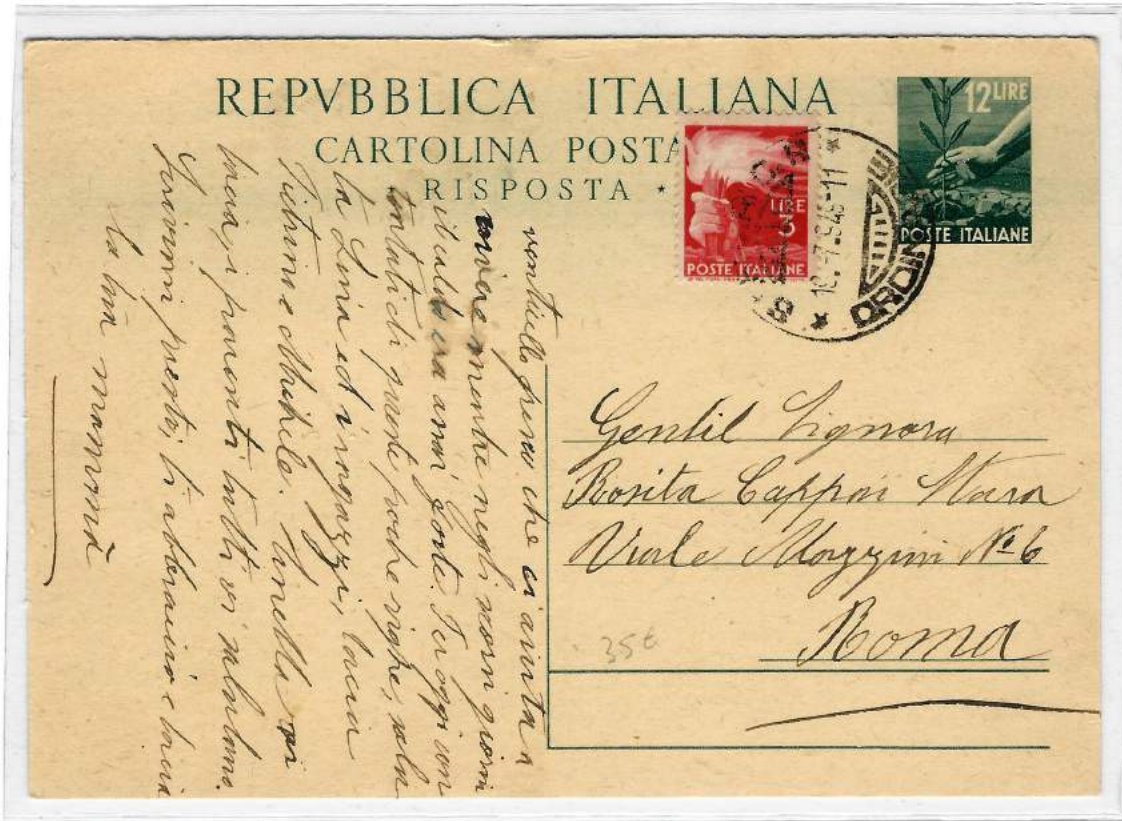 REPVBBLICA ITALIANA
CARTOLINA POSTA
RISPOSTA
12 LIRE
POSTE ITALIANE
LIRE
3
POSTE ITALIANE
ORDIN
Gentil Signora
Rosita Cappon Mara
Viale Mazzini Nº 6
Roma
35€
venticello fresco che ci aiuta a
vivere mentre negli scorsi giorni
il caldo era forte. Per oggi
di queste poche righe, saluta
la Livia ed i ragazzi, bacia
Titinino e Michele. Ninetta vi
bacia, i parenti tutti vi salutano.
Scrivimi presto, ti abbraccio e bacio
la tua mammà